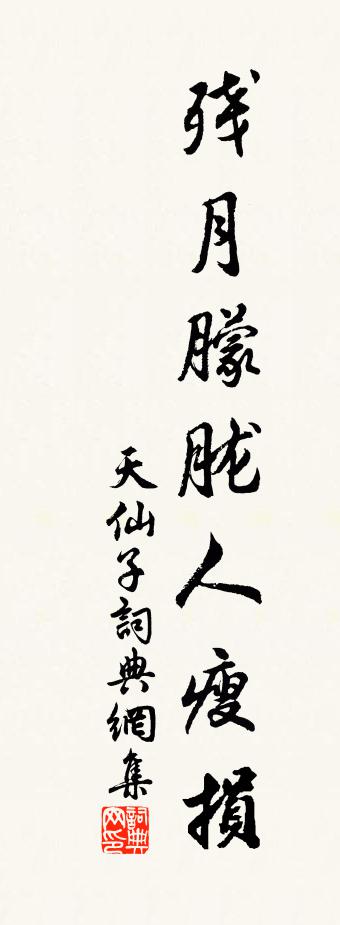 残月朦胧人瘦損
天仙子詞典網集
詞典网印